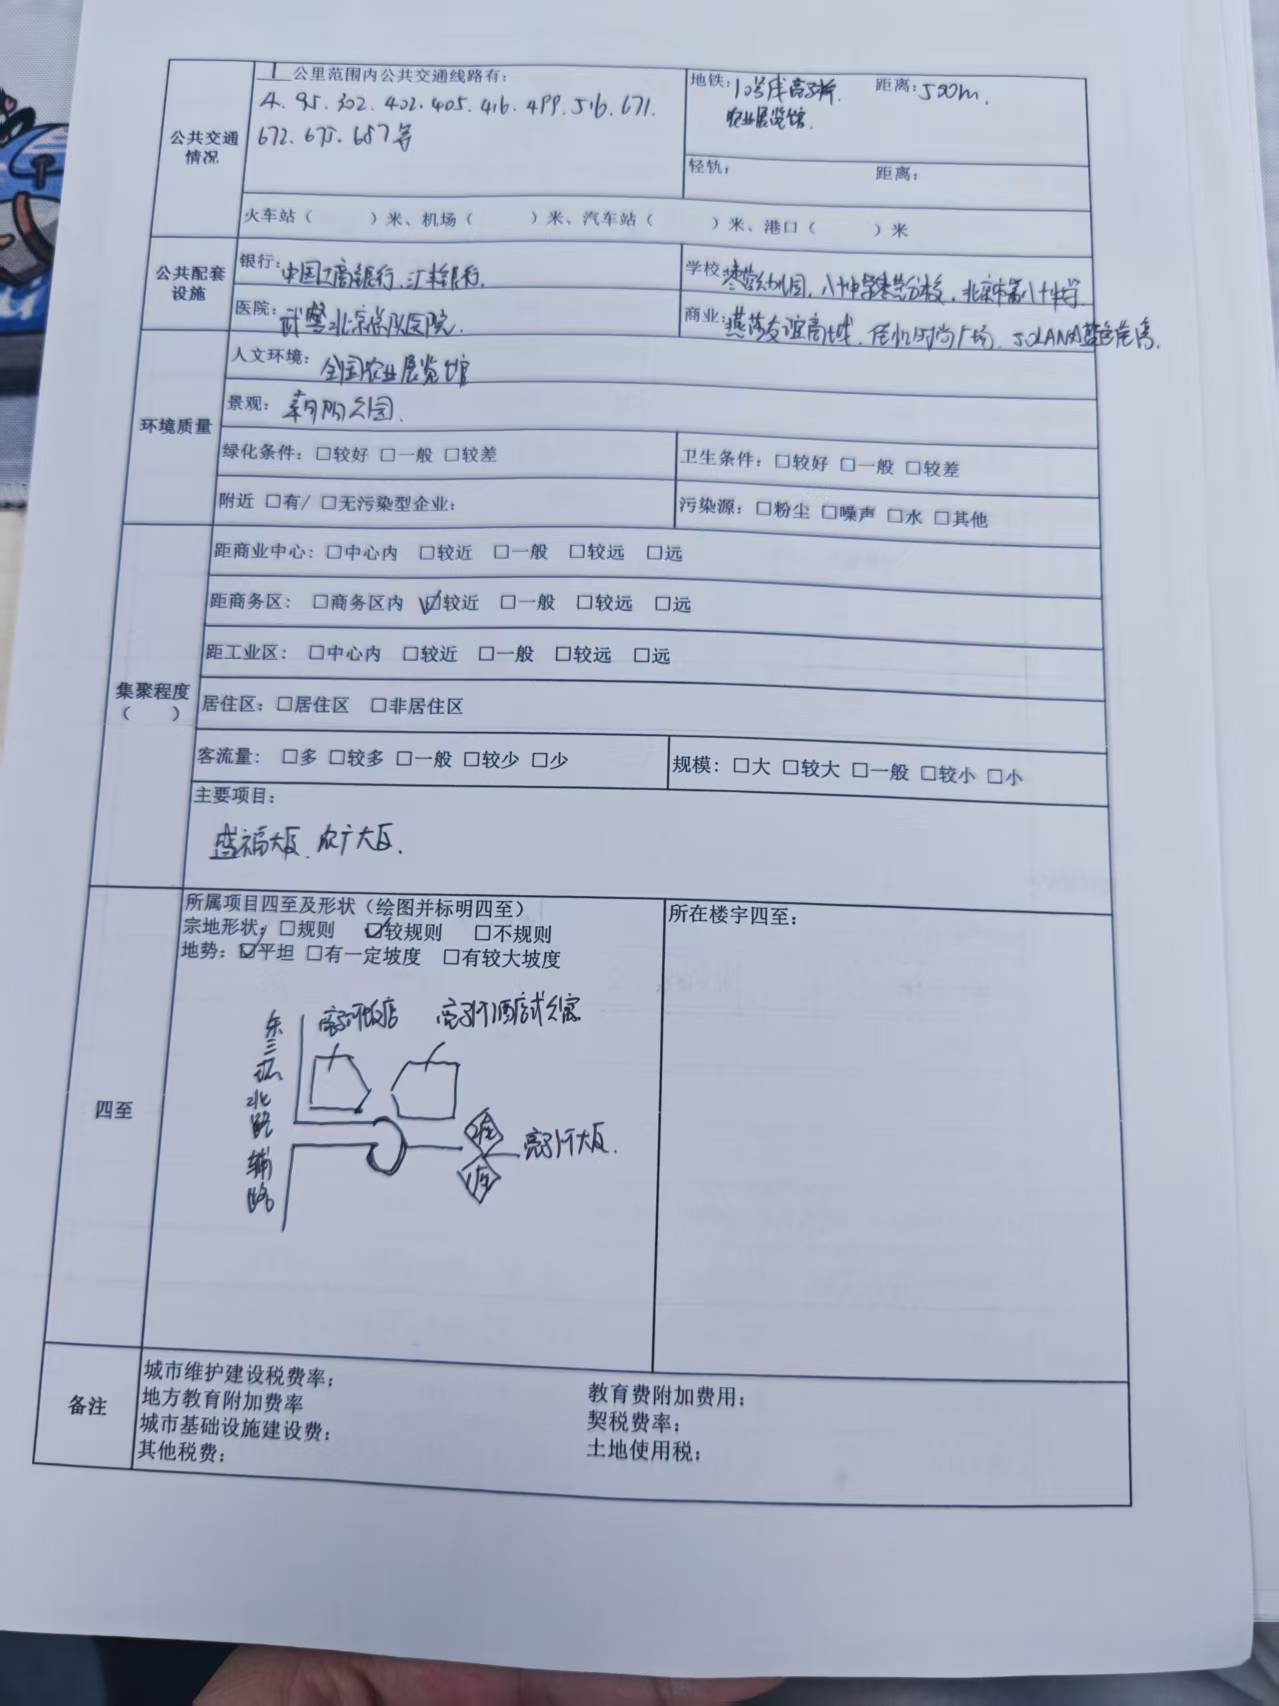 公共交通
情况
1公里范围内公共交通线路有:
4. 95. 302. 402. 405. 416. 499. 516. 671.
672. 675. 687等
地铁: 10号线亮马桥. 距离: 500m.
农业展览馆.
轻轨; 距离:
火车站( )米、机场( )米、汽车站( )米、港口( )米
公共配套
设施
银行: 中国工商银行、汇丰银行.
学校: 枣营幼儿园, 八十中学枣营分校, 北京市第八十中学.
医院: 武警北京总队医院.
商业: 燕莎友谊商城, 时尚广场, SOLANA蓝色港湾.
环境质量
人文环境: 全国农业展览馆
景观: 朝阳公园.
绿化条件: □较好 □一般 □较差
卫生条件: □较好 □一般 □较差
附近 □有/ □无污染型企业:
污染源: □粉尘 □噪声 □水 □其他
集聚程度
( )
距商业中心: □中心内 □较近 □一般 □较远 □远
距商务区: □商务区内 ☑较近 □一般 □较远 □远
距工业区: □中心内 □较近 □一般 □较远 □远
居住区: □居住区 □非居住区
客流量: □多 □较多 □一般 □较少 □少
规模: □大 □较大 □一般 □较小 □小
主要项目:
盛福大厦、农广大厦.
四至
所属项目四至及形状(绘图并标明四至)
宗地形状: □规则 ☑较规则 □不规则
地势: ☑平坦 □有一定坡度 □有较大坡度
所在楼宇四至:
东三环北路辅路
亮马河饭店 亮马河酒店式公寓
2座
亮马河大厦.
1座
备注
城市维护建设税费率;
教育费附加费用;
地方教育附加费率
契税费率;
城市基础设施建设费:
土地使用税;
其他税费;